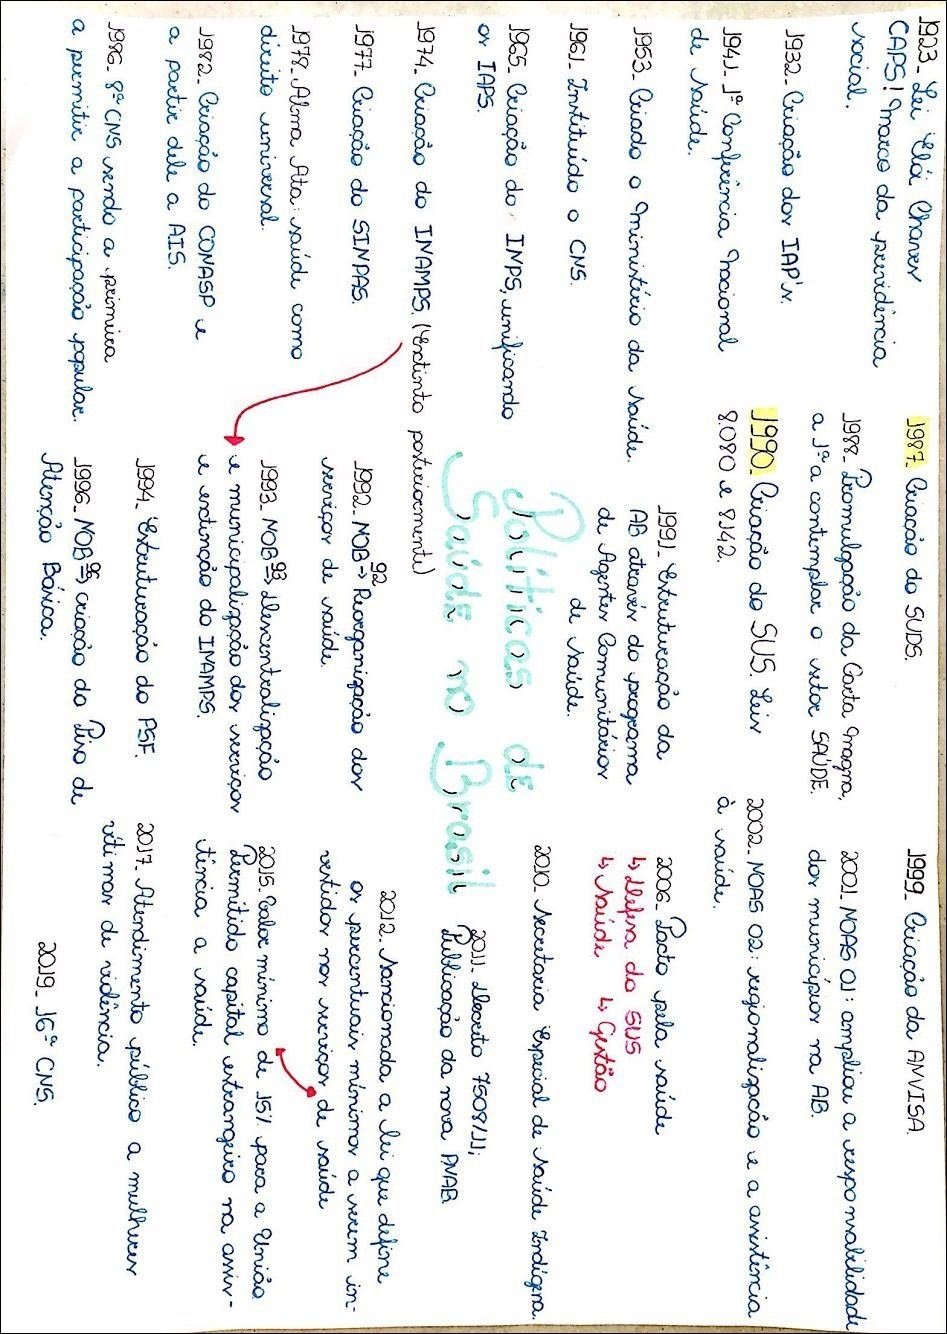 1923_ Lei Elói Chaves
CAPS! Marco da previdência
social.
1932_ Criação dos IAP's.
1941_ 1ª Conferência Nacional
de Saúde.
1953_ Criado o Ministério da Saúde.
1961_ Instituído o CNS.
1965_ Criação do INPS, unificando
os IAPS.
1974_ Criação do INAMPS. (Extinto posteriormente)
1977_ Criação do SINPAS.
1978_ Alma Ata: saúde como
direito universal.
1982_ Criação do CONASP e
a partir dele a AIS.
1986_ 8ª CNS sendo a primeira
a permitir a participação popular.
1987_ Criação do SUDS.
1988_ Promulgação da Carta Magna,
a 1ª a contemplar o setor SAÚDE.
1990_ Criação do SUS. Leis
8.080 e 8.142.
1991_ Estruturação da
AB através do programa
de Agentes Comunitários
de saúde.
Políticas de
Saúde no Brasil
1992_ NOB 92 → Reorganização dos
serviços de saúde.
1993_ NOB 93 → Descentralização
e municipalização dos serviços
e extinção do IMAMPS.
1994_ Estruturação do PSF.
1996_ NOB 96 → criação do Piso de
Atenção Básica.
1999_ Criação da ANVISA.
2001_ NOAS 01: ampliou a responsabilidade
dos municípios na AB.
2002_ NOAS 02: regionalização e a assistência
à saúde.
2006_ Pacto pela saúde
↳ Defesa do SUS
↳ Saúde ↳ Gestão
2010_ Secretaria Especial de Saúde Indígena.
2011_ Decreto 7508/11;
Publicação da nova PNAB
2012_ Sancionada a lei que define
os percentuais mínimos a serem in-
vestidos nos serviços de saúde
2015_ Valor mínimo de 15% para a União
Permitido capital estrangeiro na assis-
tência a saúde.
2017_ Atendimento público a mulheres
vítimas de violência.
2019_ 16ª CNS.